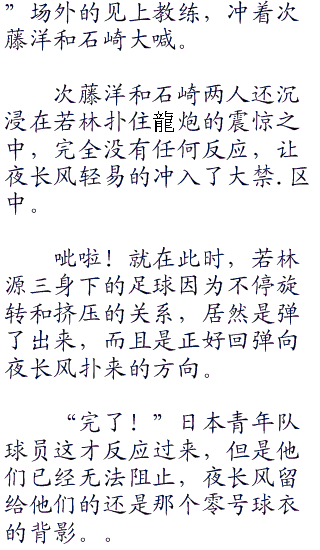 ”场外的见上教练，冲着次
藤洋和石崎大喊。
次藤洋和石崎两人还沉
浸在若林扑住龍炮的震惊之
中，完全没有任何反应，让
夜长风轻易的冲入了大禁.区
中。
呲啦！就在此时，若林
源三身下的足球因为不停旋
转和挤压的关系，居然是弹
了出来，而且是正好回弹向
夜长风扑来的方向。
“完了！”日本青年队
球员这才反应过来，但是他
们已经无法阻止，夜长风留
给他们的还是那个零号球衣
的背影。。